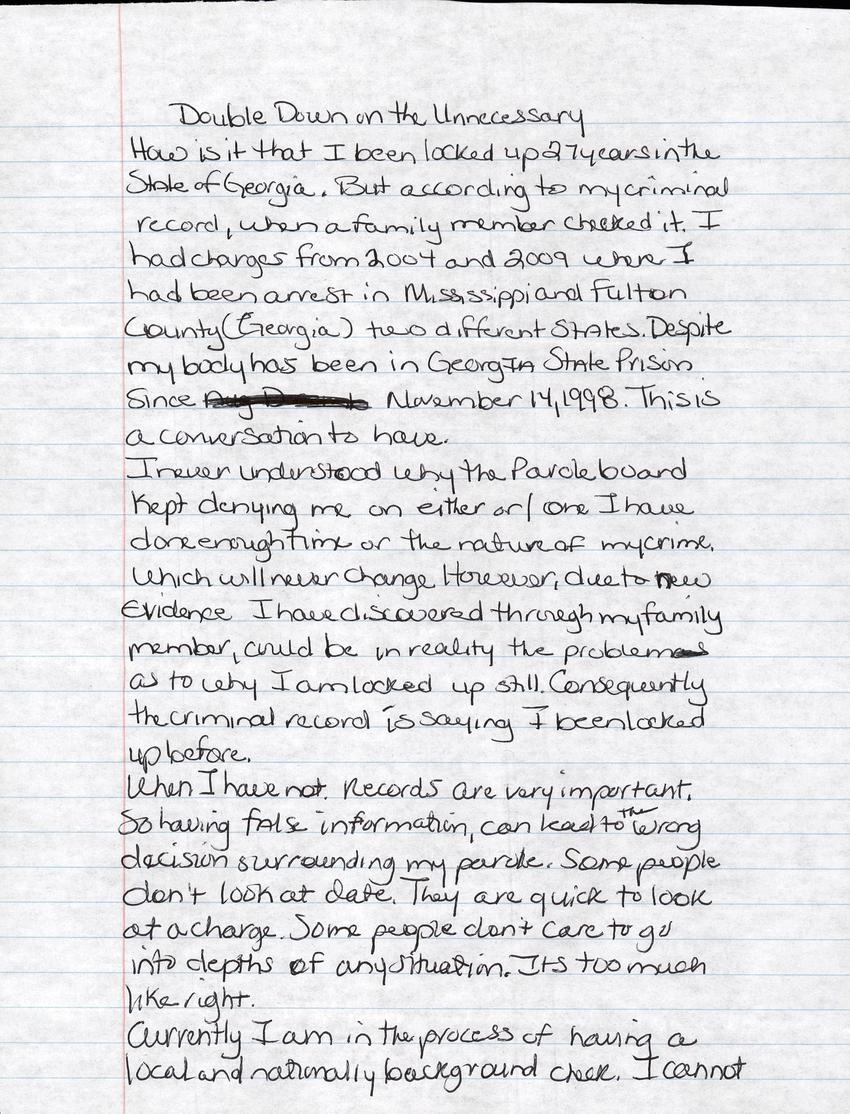 Double Down on the Unnecessary
How is it that I been locked up 27 years in the
State of Georgia. But according to my criminal
record, when a family member checked it. I
had charges from 2004 and 2009 where I
had been arrest in Mississippi and Fulton
County (Georgia) two different States. Despite
my body has been in Georgia State Prison
Since November 14, 1998. This is
a conversation to have.
I never understood why the Parole board
Kept denying me on either or/ one I have
done enough time or the nature of my crime.
Which will never change However, due to new
Evidence I have discovered through my family
member, could be in reality the problem
as to why I am locked up still. Consequently
the criminal record is saying I been locked
up before.
When I have not. Records are very important.
So having false information, can lead to the wrong
decision surrounding my parole. Some people
don't look at date. They are quick to look
at a charge. Some people don't care to go
into depths of any situation. Its too much
like right.
Currently I am in the process of having a
local and nationally background check. I cannot